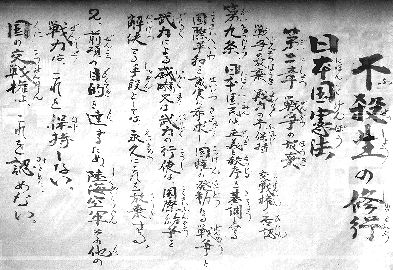 不殺生の修行
日本国憲法
第二章 戦争の放棄
戦争の放棄 戦力の不保持 交戦権の否認
第九条 日本国民は正義と秩序を基調とする
国際平和を誠実に希求し 国権の発動たる戦争と
武力による威嚇又は武力の行使は国際紛争を
解決する手段としては永久にこれを放棄する。
2、前項の目的を達するため陸海空軍その他の
戦力はこれを保持しない。
国の交戦権はこれを認めない。